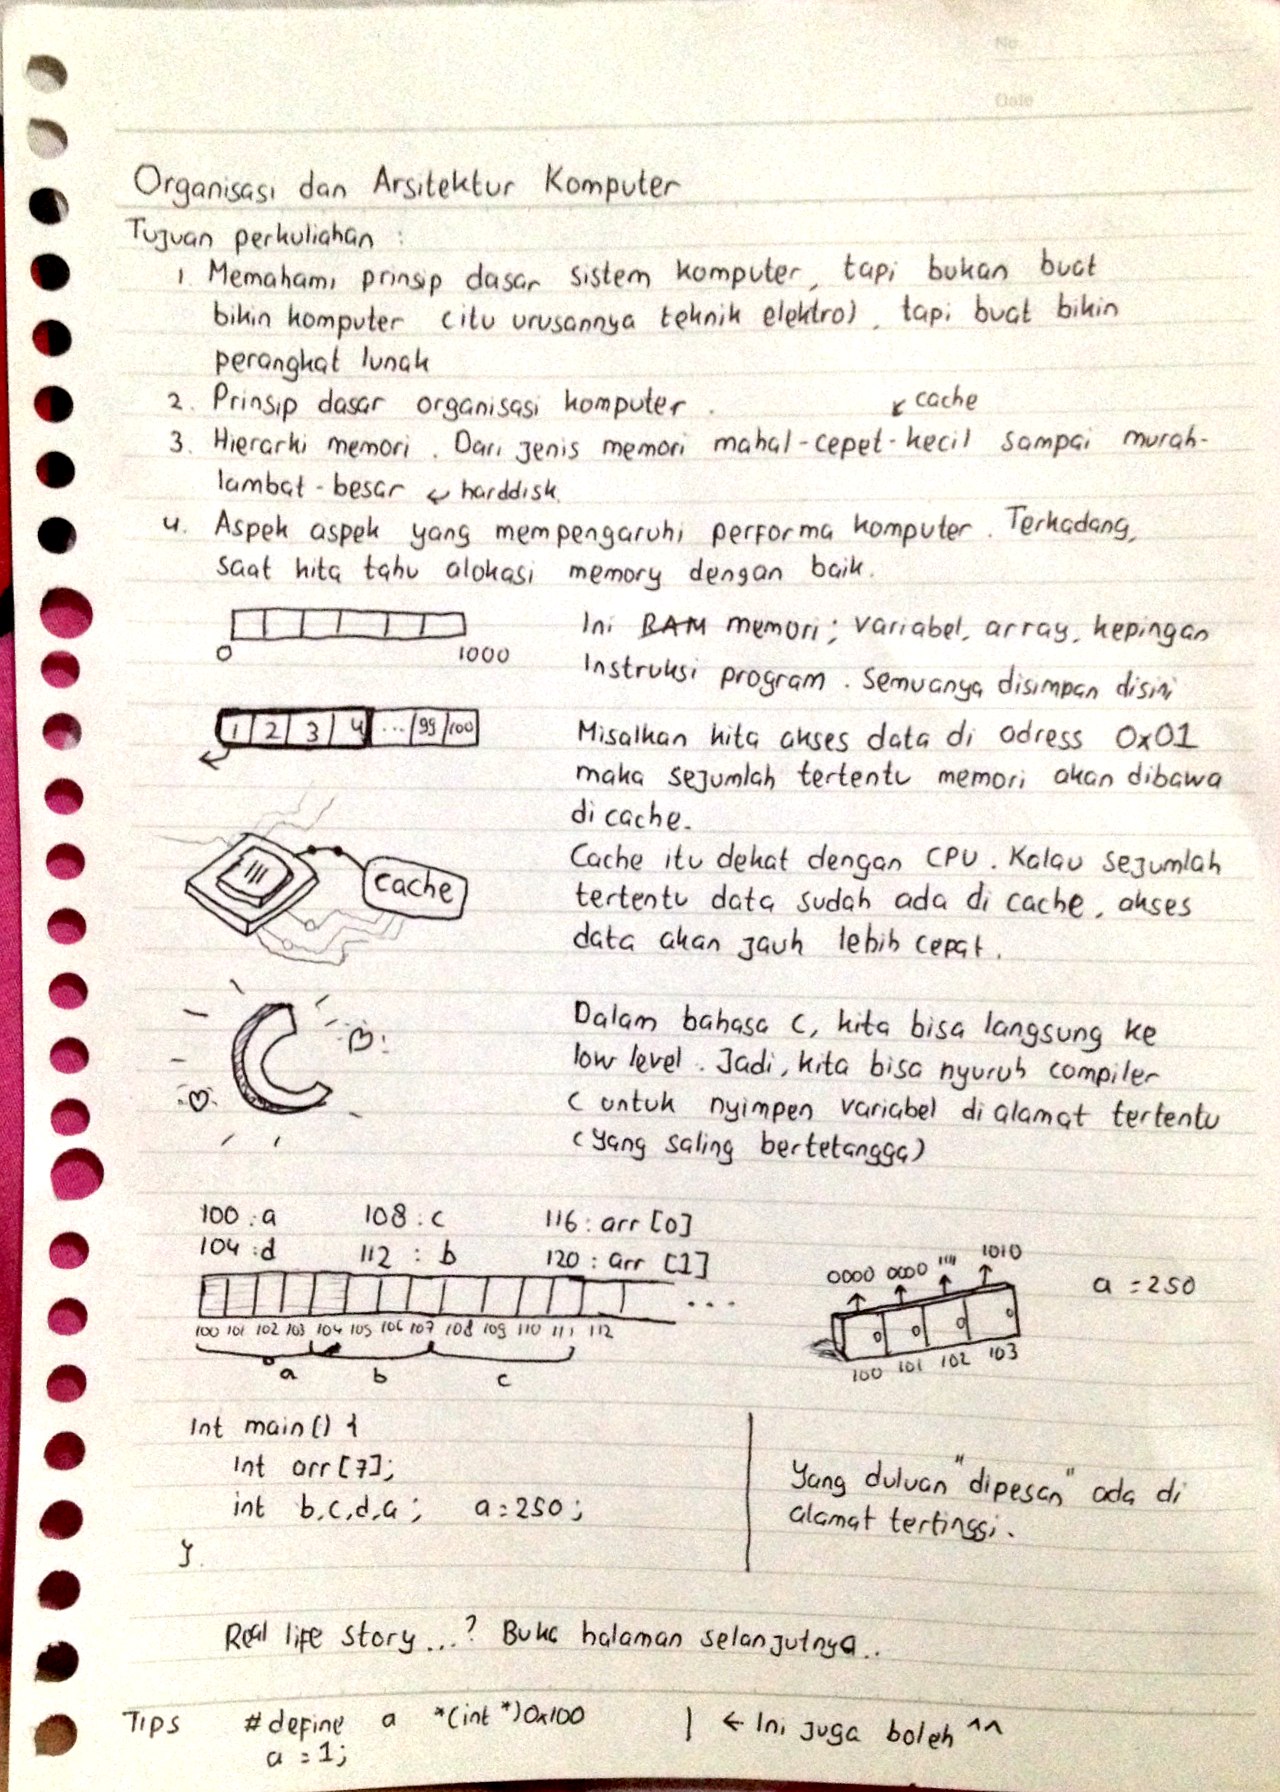 No
Date
Organisasi dan Arsitektur Komputer
Tujuan perkuliahan :
1 Memahami prinsip dasar sistem komputer, tapi bukan buat
bikin komputer (itu urusannya teknik elektro), tapi buat bikin
perangkat lunak
2. Prinsip dasar organisasi komputer.
↙ cache
3. Hierarki memori. Dari jenis memori mahal-cepet-kecil sampai murah-
lambat-besar ↙ harddisk.
4. Aspek aspek yang mempengaruhi performa komputer. Terkadang,
saat kita tahu alokasi memory dengan baik.
0 1000
Ini RAM memori; variabel, array, kepingan
Instruksi program. Semuanya disimpan disini
1 2 3 4 ... 99 100
Misalkan kita akses data di adress 0x01
maka sejumlah tertentu memori akan dibawa
di cache.
cache
Cache itu dekat dengan CPU. Kalau sejumlah
tertentu data sudah ada di cache, akses
data akan jauh lebih cepat.
C
Dalam bahasa C, kita bisa langsung ke
low level. Jadi, kita bisa nyuruh compiler
C untuk nyimpen variabel di alamat tertentu
(yang saling bertetangga)
100 : a 108 : c 116 : arr [0]
104 : d 112 : b 120 : arr [1]
...
100 101 102 103 104 105 106 107 108 109 110 111 112
a b c
0000 0000 1111 1010
100 101 102 103
a = 250
Int main() {
Int arr [7];
int b,c,d,a; a = 250;
}.
Yang duluan "dipesan" ada di
alamat tertinggi.
Real life story...? Buka halaman selanjutnya..
TIPS #define a *(int *)0x100 | ← Ini juga boleh ^^
a = 1;